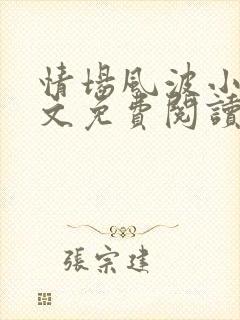 情場風波小
文免費閱讀
張宗建